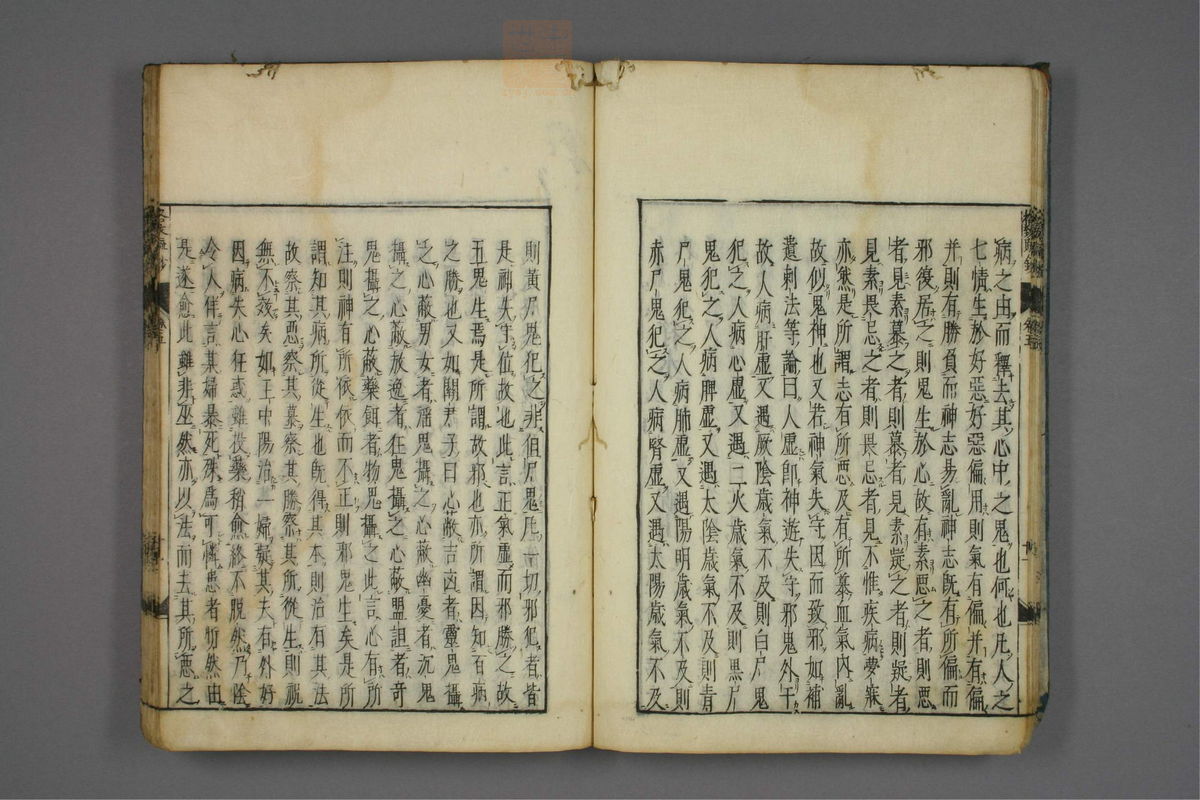 病之由而釋去其心中之鬼也何也凡人之
七情生於好惡好惡偏用則氣有偏并有偏
并則有勝負而神志易亂神志既有所偏而
邪復居之則鬼生於心故有素惡之者則惡
者見素慕之者則慕者見素疑之者則疑者
見素畏忌之者則畏忌者見不惟疾病夢寐
亦然是所謂志有所惡及有所慕血氣内亂
故似鬼神也又若神氣失守因而致邪如補
遺刺法等論曰人虛即神遊失守邪鬼外干
故人病肝虛又遇厥陰歲氣不及則白尸鬼
犯之人病心虛又遇二火歲氣不及則黒尸
鬼犯之人病脾虛又遇太陰歲氣不及則青
尸鬼犯之人病肺虛又遇陽明歲氣不及則
赤尸鬼犯之人病腎虛又遇太陽歲氣不及
則黄尸鬼犯之非但尸鬼凡一切邪犯者皆
是神失守位故也此言正氣虛而邪勝之故
五鬼生焉是所謂故邪也亦所謂因知百病
之勝也又如關尹子曰心蔽吉凶者靈鬼攝
之心蔽男女者淫鬼攝之心蔽幽憂者沉鬼
攝之心蔽放逸者狂鬼攝之心蔽盟詛者奇
鬼攝之心蔽藥餌者物鬼攝之此言心有所
注則神有所依依而不正則邪鬼生矣是所
謂知其病所從生也既得其本則治有其法
故察其惡察其慕察其勝察其所從生則祝
無不效矣如王中陽治一婦疑其夫有外好
因病失心狂惑雖投藥稍愈終不脫然乃陰
令人佯言某婦暴死殊爲可憐患者忻然由
是遂愈此雖非巫然亦以法而去其所惡之